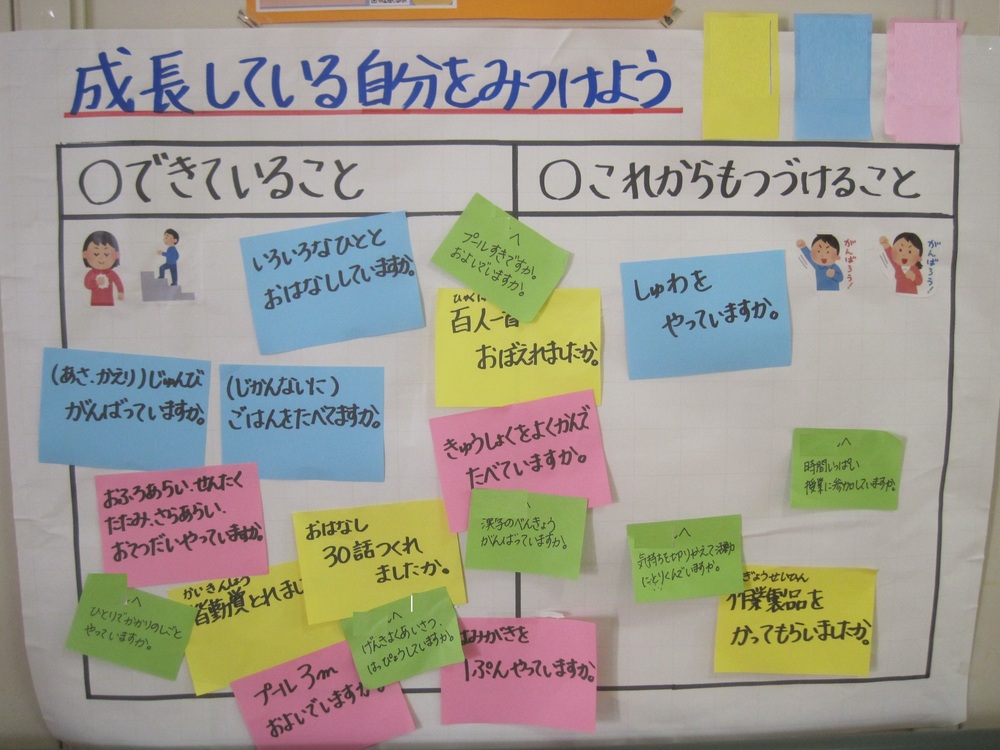 成長している自分をみつけよう
○できていること
○これからもつづけること
いろいろなひとと
おはなししていますか。
プールすきですか。
およいでいますか。
百人一首
おぼえれましたか。
しゅわを
やっていますか。
がんばろう!
がんばろう!
(あさ、かえり)じゅんび
がんばっていますか。
(じかんないに)
ごはんをたべてますか。
きゅうしょくをよくかんで
たべていますか。
時間いっぱい
授業に参加していますか。
おふろあらい、せんたく
たたみ、さらあらい、
おてつだいやっていますか。
おはなし
30話つくれ
ましたか。
漢字のべんきょう
がんばっていますか。
気持ちを切りかえて活動
にとりくんでいますか。
かいきんしょう
皆勤賞とれまし
ひとりでかかりのしごと
やっていますか。
げんきよくあいさつ、
はっぴょうしていますか。
ぎょうせいひん
作業製品を
かってもらいましたか。
プール3m
およいでいますか。
はみがきを
1ぷんやっていますか。